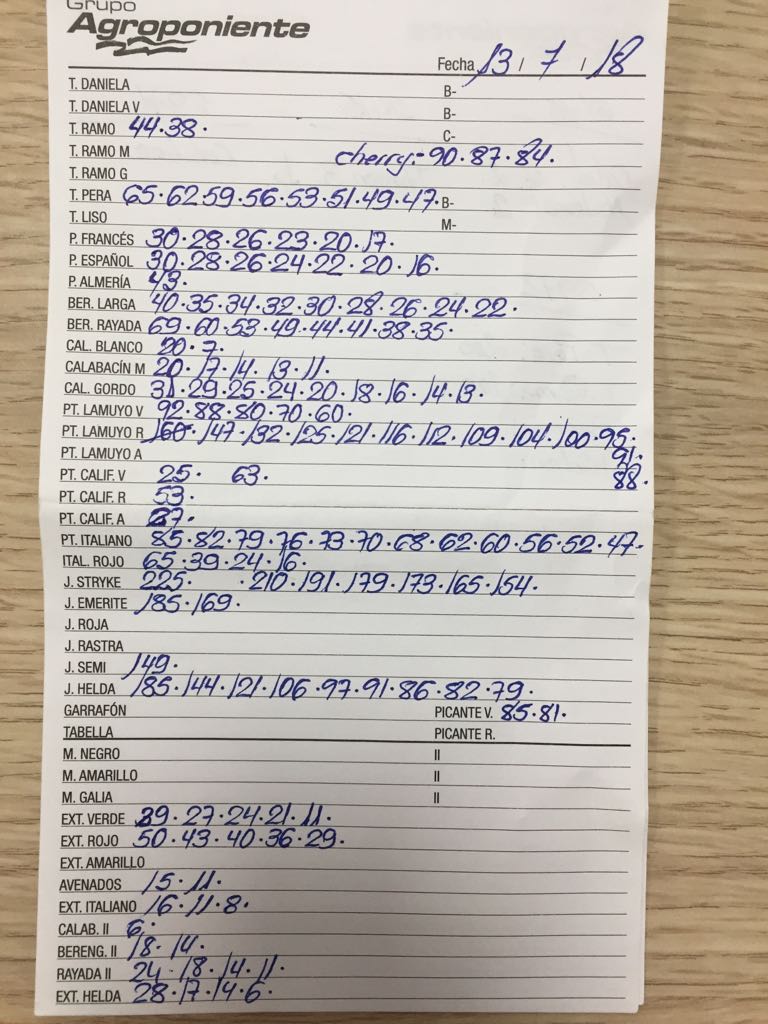 Grupo
Agroponiente
Fecha 13 / 7 / 18
T. DANIELA B-
T. DANIELA V B-
T. RAMO 44.38. C-
T. RAMO M cherry:- 90.87.84.
T. RAMO G
T. PERA 65.62 59.56.53.51.49.47. B-
T. LISO M-
P. FRANCÉS 30.28.26.23.20.17.
P. ESPAÑOL 30.28.26.24.22.20.16.
P. ALMERÍA 43.
BER. LARGA 40.35.34.32.30.28.26.24.22.
BER. RAYADA 69.60.53.49.44.41.38.35.
CAL. BLANCO 20.7.
CALABACÍN M 20.17.14.13.11.
CAL. GORDO 31.29.25.24.20.18.16.14.13.
PT. LAMUYO V 92.88.80.70.60.
PT. LAMUYO R 160.147.132.125.121.116.112.109.104.100.95.
PT. LAMUYO A 91.
PT. CALIF. V 25. 63. 88.
PT. CALIF. R 53.
PT. CALIF. A 87.
PT. ITALIANO 85.82.79.76.73.70.68.62.60.56.52.47.
ITAL. ROJO 65.39.24.16.
J. STRYKE 225. .210.191.179.173.165.154.
J. EMERITE 185.169.
J. ROJA
J. RASTRA
J. SEMI 149.
J. HELDA 185.144.121.106.97.91.86.82.79.
GARRAFÓN PICANTE V. 85.81.
TABELLA PICANTE R.
M. NEGRO II
M. AMARILLO II
M. GALIA II
EXT. VERDE 39.27.24.21.11.
EXT. ROJO 50.43.40.36.29.
EXT. AMARILLO
AVENADOS 15.11.
EXT. ITALIANO 16.11.8.
CALAB. II 6.
BERENG. II 18.14.
RAYADA II 24.18.14.11.
EXT. HELDA 28.17.14.6.